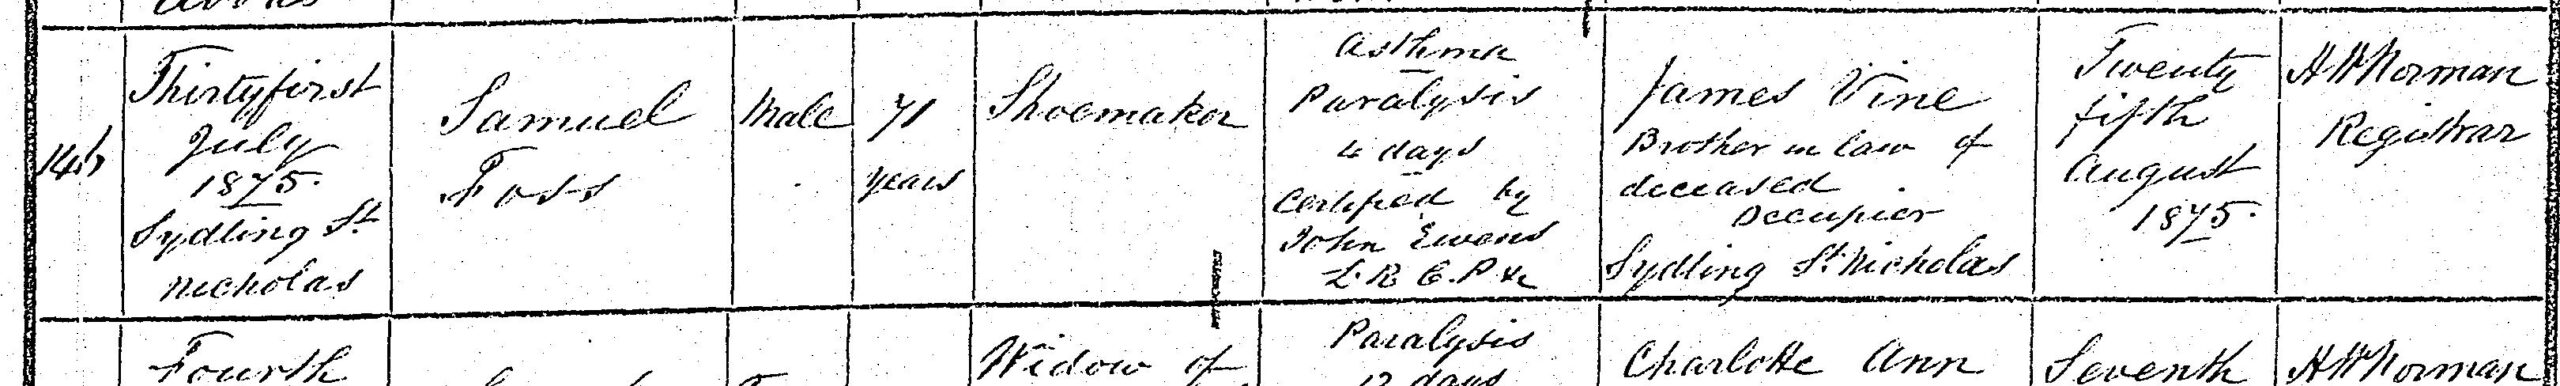 Thirtyfirst
July
1875.
Sydling St
Nicholas
Samuel
Foss
Male
71
years
Shoemaker
Asthma
Paralysis
4 days
Certified by
John Ewens
L.R.C.P &c
James Vine
Brother in law of
deceased
Occupier
Sydling St. Nicholas
Twenty
fifth
August
1875.
H W Norman
Registrar
Fourth
Widow of
Paralysis
12 days
Charlotte Ann
Seventh
H W Norman